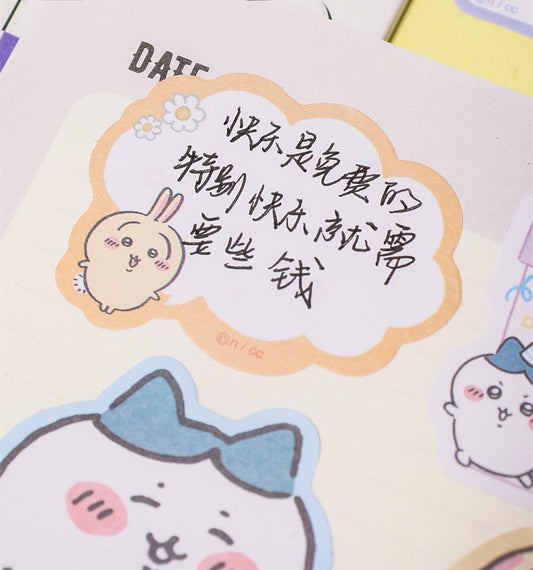 DATE
快乐是免费的
特别快乐就需
要些钱
©n/cc
©n/cc